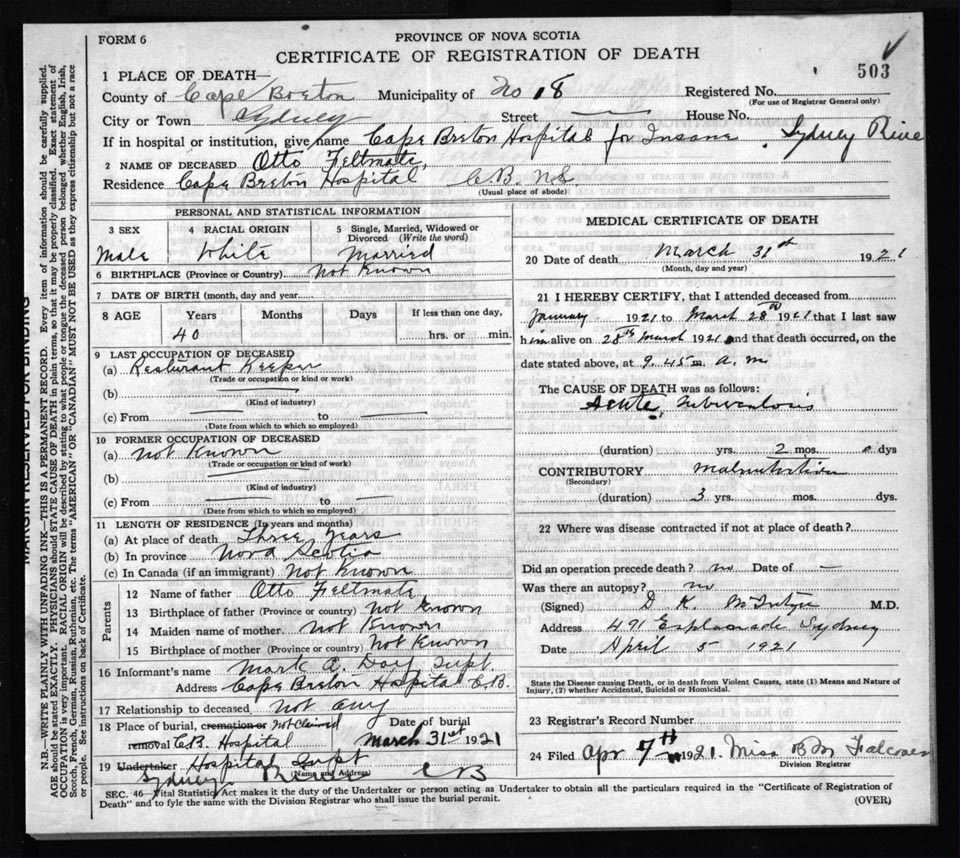 FORM 6
PROVINCE OF NOVA SCOTIA
CERTIFICATE OF REGISTRATION OF DEATH
503
1 PLACE OF DEATH—
County of Cape Breton Municipality of No 18 Registered No.
(For use of Registrar General only)
City or Town Sydney Street — House No.
If in hospital or institution, give name Cape Breton Hospital for Insane. Sydney River
2 NAME OF DECEASED Otto Feltmate,
Residence Cape Breton Hospital C.B. N.S.
(Usual place of abode)
PERSONAL AND STATISTICAL INFORMATION
3 SEX 4 RACIAL ORIGIN 5 Single, Married, Widowed or Divorced (Write the word)
Male White Married
6 BIRTHPLACE (Province or Country) Not Known
7 DATE OF BIRTH (month, day and year)
8 AGE Years Months Days If less than one day,
40 hrs. or min.
9 LAST OCCUPATION OF DECEASED
(a) Resturant Keeper
(Trade or occupation or kind or work)
(b)
(Kind of industry)
(c) From — to —
(Date from which to which so employed)
10 FORMER OCCUPATION OF DECEASED
(a) Not Known
(Trade or occupation or kind of work)
(b)
(Kind of industry)
(c) From — to —
(Date from which to which so employed)
11 LENGTH OF RESIDENCE (In years and months)
(a) At place of death Three Years
(b) In province Nova Scotia
(c) In Canada (if an immigrant) Not Known
Parents
12 Name of father Otto Feltmate
13 Birthplace of father (Province or country) Not Known
14 Maiden name of mother Not Known
15 Birthplace of mother (Province or country) Not Known
16 Informant's name Mark A. Day Supt.
Address Cape Breton Hospital C.B.
17 Relationship to deceased Not any
18 Place of burial, cremation or Not Claimed Date of burial
removal C.B. Hospital March 31st 1921
19 Undertaker Hospital Supt
(Name and Address)
Sydney River CB
MEDICAL CERTIFICATE OF DEATH
20 Date of death March 31st 1921
(Month, day and year)
21 I HEREBY CERTIFY, that I attended deceased from
January 1921 to March 28th 1921 that I last saw
him alive on 28th March 1921 and that death occurred, on the
date stated above, at 9.45 m. a.m
The CAUSE OF DEATH was as follows:
Acute Tuberculosis
(duration) yrs. 2 mos. dys
CONTRIBUTORY Malnutrition
(Secondary)
(duration) 3 yrs. mos. dys.
22 Where was disease contracted if not at place of death?
Did an operation precede death? no Date of —
Was there an autopsy? no
(Signed) D K McIntyre M.D.
Address 491 Esplanade Sydney
Date April 5 1921
State the Disease causing Death, or in death from Violent Causes, state (1) Means and Nature of Injury, (2) whether Accidental, Suicidal or Homicidal.
23 Registrar's Record Number
24 Filed Apr 7th 1921. Miss B M Falconer
Division Registrar
SEC. 46—Vital Statistics Act makes it the duty of the Undertaker or person acting as Undertaker to obtain all the particulars required in the "Certificate of Registration of
Death" and to fyle the same with the Division Registrar who shall issue the burial permit.
(OVER)
MARGIN RESERVED FOR BINDING
N.B.—WRITE PLAINLY WITH UNFADING INK—THIS IS A PERMANENT RECORD. Every item of information should be carefully supplied.
AGE should be stated EXACTLY. PHYSICIANS should STATE CAUSE OF DEATH in plain terms, so that it may be properly classified. Exact statement of
OCCUPATION is very important. RACIAL ORIGIN will be described by stating to what people or tongue the deceased person belonged whether English, Irish,
Scotch, French, German, Russian, Ruthenian, etc. The terms "AMERICAN" OR "CANADIAN" MUST NOT BE USED as they express citizenship but not a race
or people. See instructions on back of Certificate.